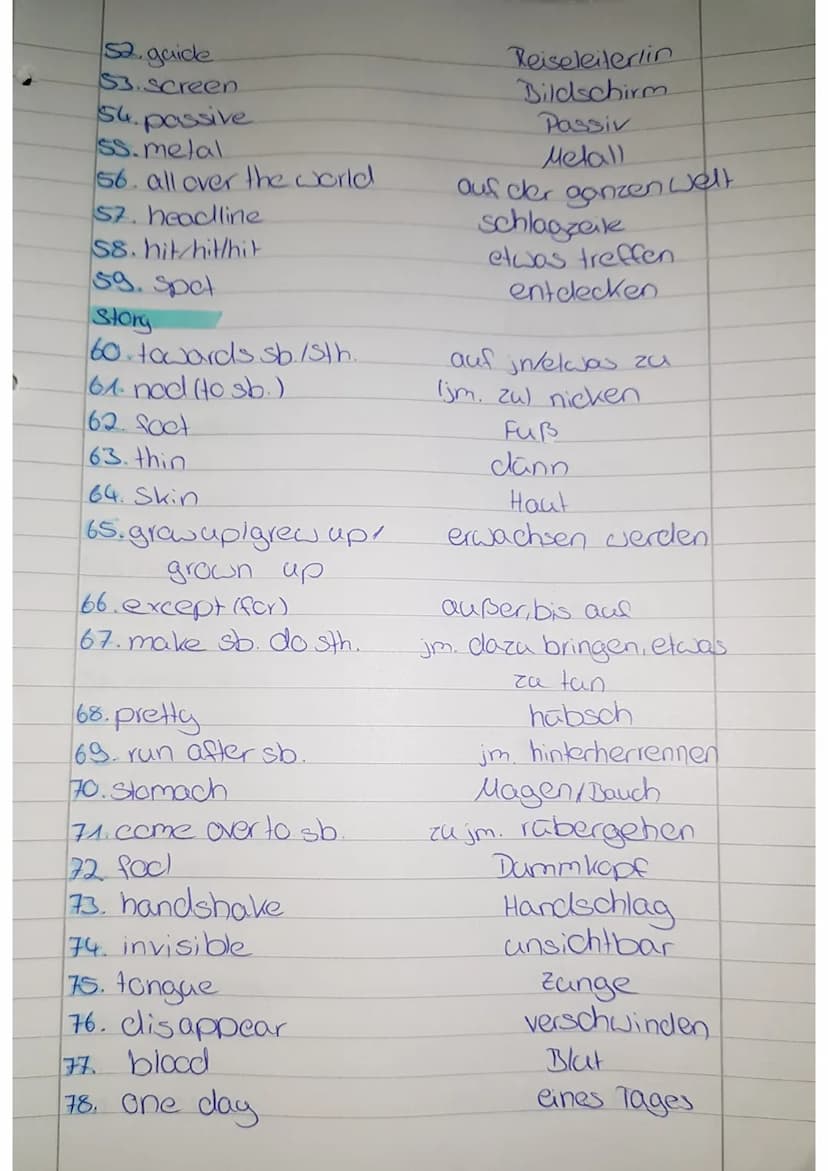 52. guide Reiseleiter/in
53. screen Bildschirm
54. passive Passiv
55. metal Metall
56. all over the world auf der ganzen Welt
57. headline Schlagzeile
58. hit/hit/hit etwas treffen
59. spot entdecken
Story
60. towards sb./sth. auf jn/etwas zu
61. nod (to sb.) (jm. zu) nicken
62. foot Fuß
63. thin dünn
64. skin Haut
65. grow up/grew up/ erwachsen werden
grown up
66. except (for) außer, bis auf
67. make sb. do sth. jm. dazu bringen, etwas
zu tun
68. pretty hübsch
69. run after sb. jm. hinterherrennen
70. stomach Magen/Bauch
71. come over to sb. zu jm. rübergehen
72 fool Dummkopf
73. handshake Handschlag
74. invisible unsichtbar
75. tongue Zunge
76. disappear verschwinden
77. blood Blut
78. one day eines Tages